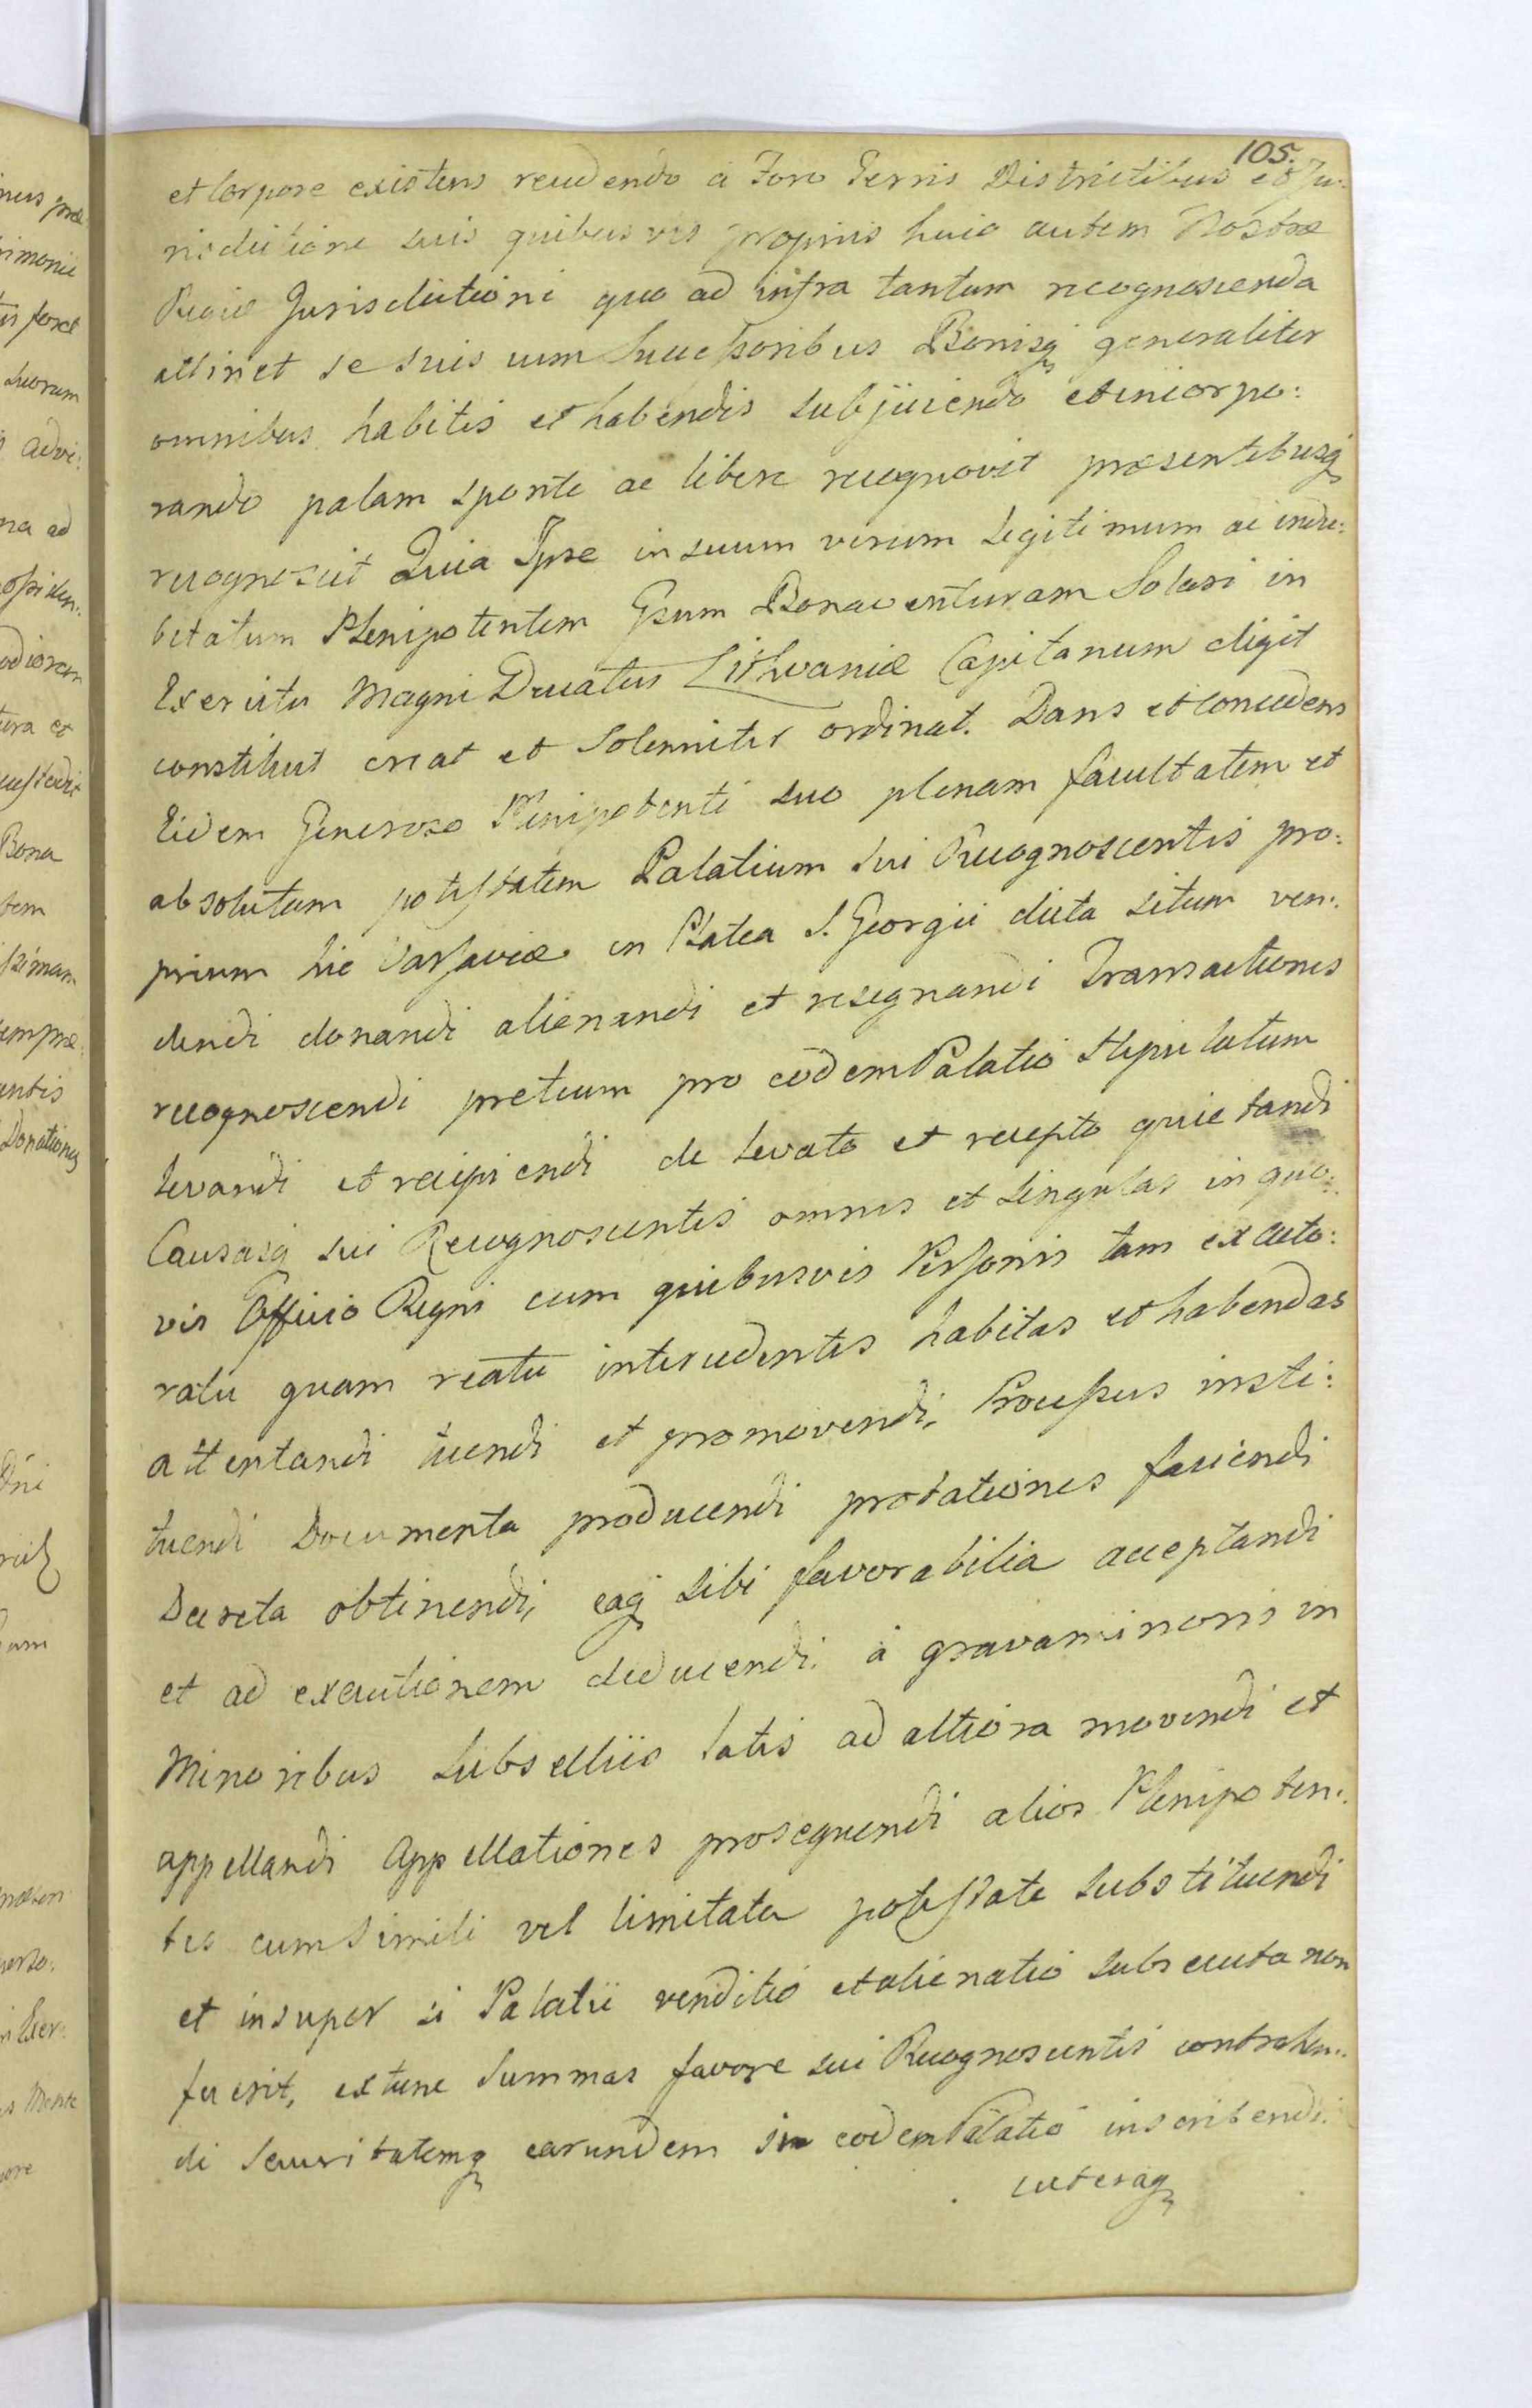 105.
et Corpore existens recedendo a Foro Terris Districtibus et Ju:
risdictione suis quibusvis propriis huic autem Nostræ
Regiæ Jurisdictioni quo ad infra tantum recognoscenda
attinet se suis cum Successoribus Bonisq generaliter
omnibus habitis et habendis subjiciendo et incorpo:
rando palam sponte ac libere recognovit præsentibusq
recognoscit Quia Ipse in suum verum legitimum ac indu:
bitatum Plenipotentem Gsum Bonaventuram Solari in
Exercitu Magni Ducatus Lithvaniæ Capitanum eligit
constituit creat et Solenniter ordinat. Dans et Concedens
Eidem Generoso Plenipotenti suo plenam facultatem et
absolutam potestatem Palatium sui Recognoscentis pro:
prium hic Varsaviæ in Platea S. Georgii dicta situm ven:
dendi donandi alienandi et resignandi Transactiones
recognoscendi pretium pro eodem Palatio stipulatum
levandi et recipiendi de levato et recepto quietandi
Causasq sui Recognoscentis omnes et singulas in quo:
vis Officio Regni cum quibusvis Personis tam ex acto:
ratu quam reatu intercedentes habitas et habendas
attentandi tuendi et promovendi, Processus insti:
tuendi Documenta producendi probationes faciendi
Decreta obtinendi, eaq sibi favorabilia acceptandi
et ad executionem deducendi. a gravaminonis in
Minoribus Subselliis latis ad altiora movendi et
appellandi Appellationes prosequendi alios Plenipoten:
tes cum simili vel limitata potestate substituendi
et insuper si Palatii venditio et alienatio subsecuta non
fuerit, extunc Summas favore sui Recognoscentis contrahen:
di Securitatemq earundem in eodem Palatio inscribendi.
cæteraq